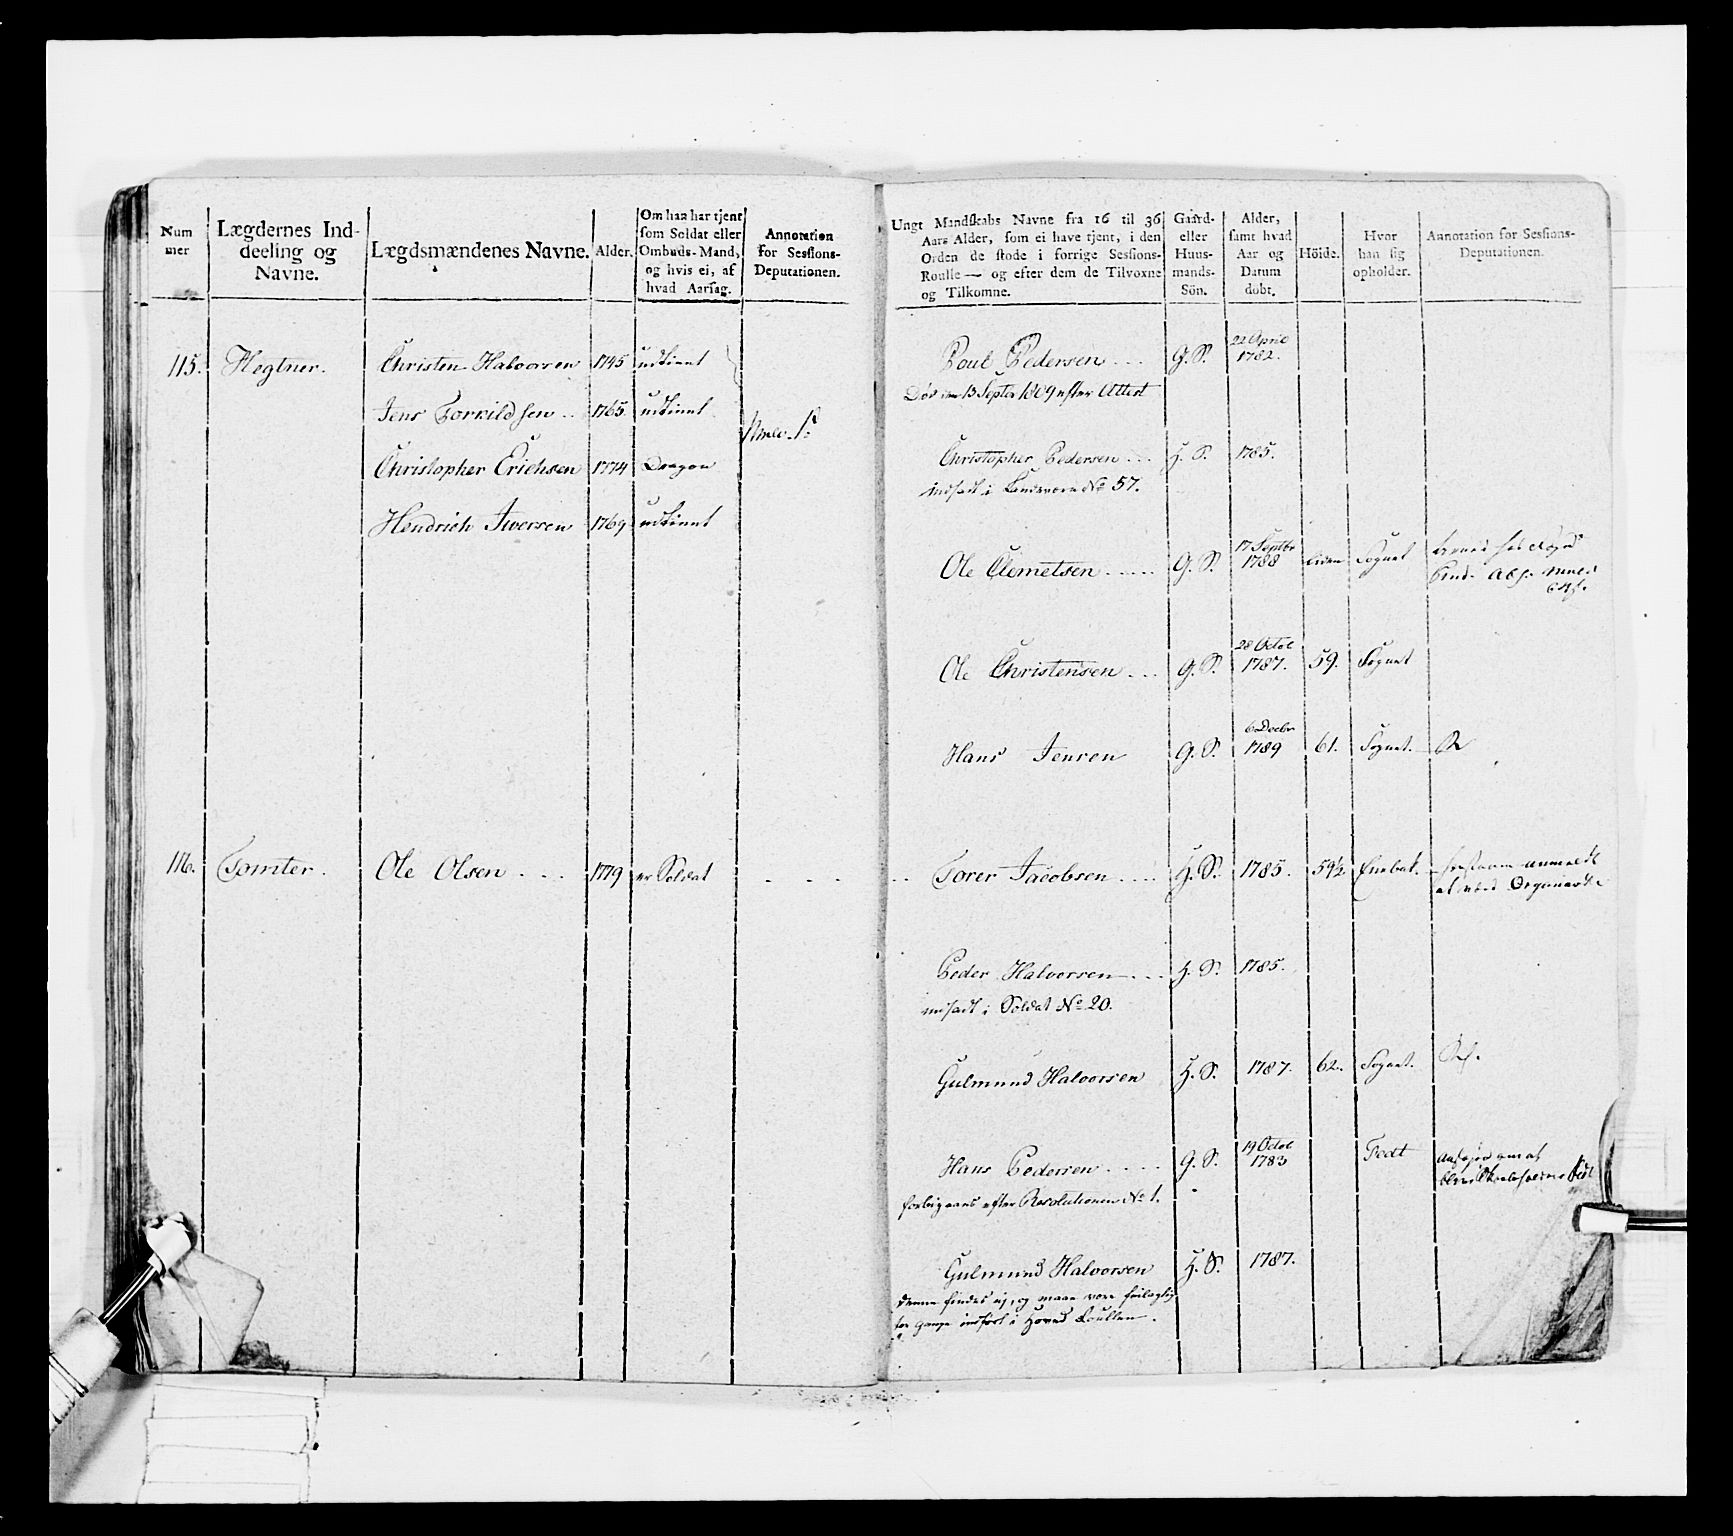 Num
mer
Lægdernes Ind-
deeling og
Navne.
Lægdsmændenes Navne.
Alder.
Om han har tjent
som Soldat eller
Ombuds-Mand,
og hvis ei, af
hvad Aarsag.
Annotation
for Sessions-
Deputationen.
115. Hegtner. Christen Halvorsen 1745 udtient
Jens Torkildsen .. 1765. udtient
Christopher Erichsen 1774 Dragon
Hendrich Iversen 1769 udtient
116. Tomter. Ole Olsen . . . 1779 er Soldat - - -
Ungt Mandskabs Navne fra 16 til 36
Aars Alder, som ei have tjent, i den
Orden de stode i forrige Sessions-
Roulle — og efter dem de Tilvoxne
og Tilkomne.
Gaard-
eller
Huus-
mands-
Sön.
Alder,
samt hvad
Aar og
Datum
döbt.
Höide.
Hvor
han sig
opholder.
Annotation for Sessions-
Deputationen.
22 April
Poul Pedersen . . . G. S. 1782.
Død den 13 Septbr 1809 efter Attest
Christopher Pedersen . . . H. S. 1785.
indsadt i Landeværn No 57.
17 Septbr
Ole Clemetsen . . . . G. S. 1788 liden Sognet
28 Octob
Ole Christensen . . . G. S. 1787. 59. Sognet
6 Decbr
Hans Jensen G. S. 1789 61. Sognet.
Torer Jacobsen . . . . H. S. 1785. 59½ Enebak.
Peder Halvorsen . . . H. S. 1785.
indsadt i Soldat No 20.
Gulmund Halvorsen H. S. 1787. 62. Sognet.
19 Octob
Hans Pedersen . . . . G. S. 1783 Født
forbigaaes efter Resolutionen No 1.
Gulmund Halvorsen H. S. 1787.
denne findes ej, og maae være feilagtig
to Gange indført i Hoved Roullen.